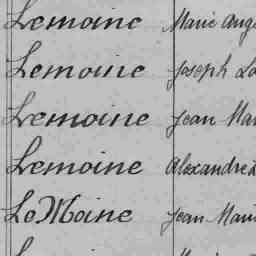 Lemoine Marie Aug
Lemoine Joseph Lo
Lemoine Jean Mar
Lemoine Alexandre
LeMoine Jean Marie